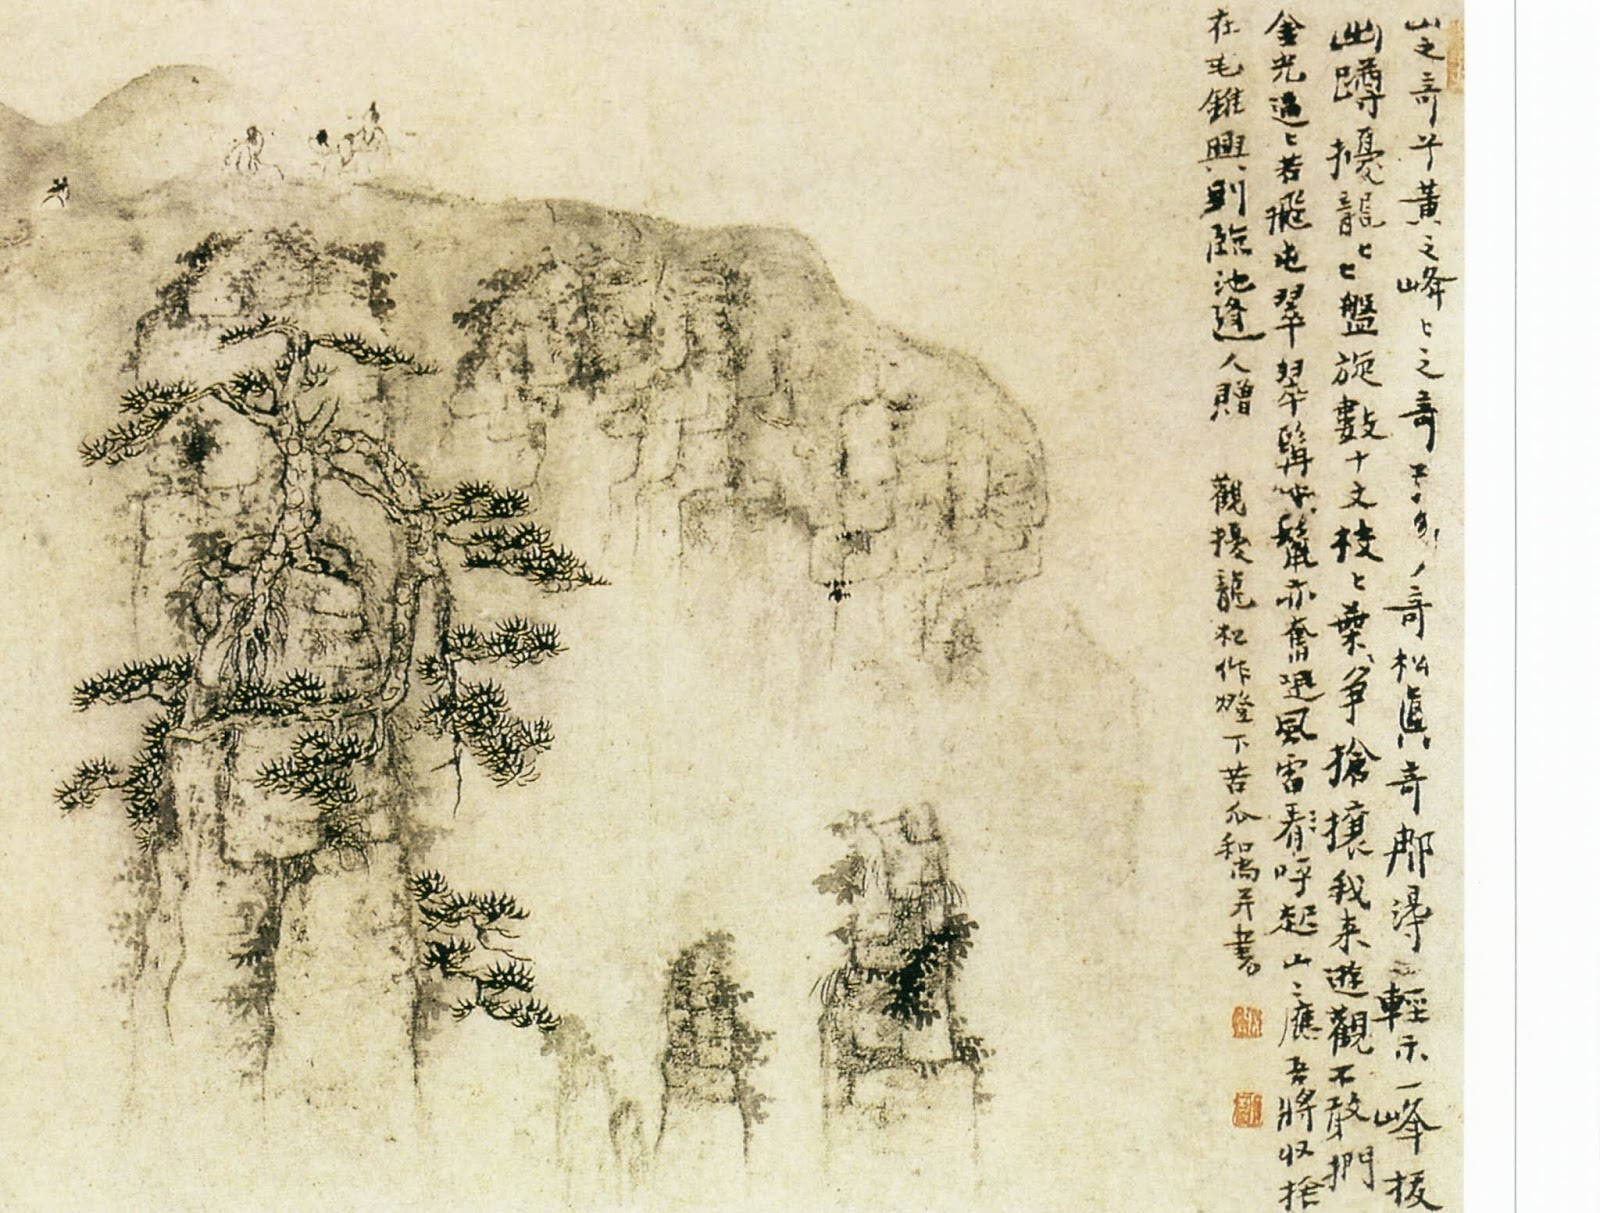 山之奇兮黃之峰〻之奇兮多奇松真奇那得輕示一峰拔
幽蹲擾龍〻〻盤旋數十丈枝〻葉〻爭搶攘我來遊觀不敢捫
金光遍〻若飛屯翠翠髯鬣亦奮迅風雷看呼起山〻應吾將收拾
在毛錐興到臨池逢人贈 觀擾龍松作燈下苦瓜和尚并書